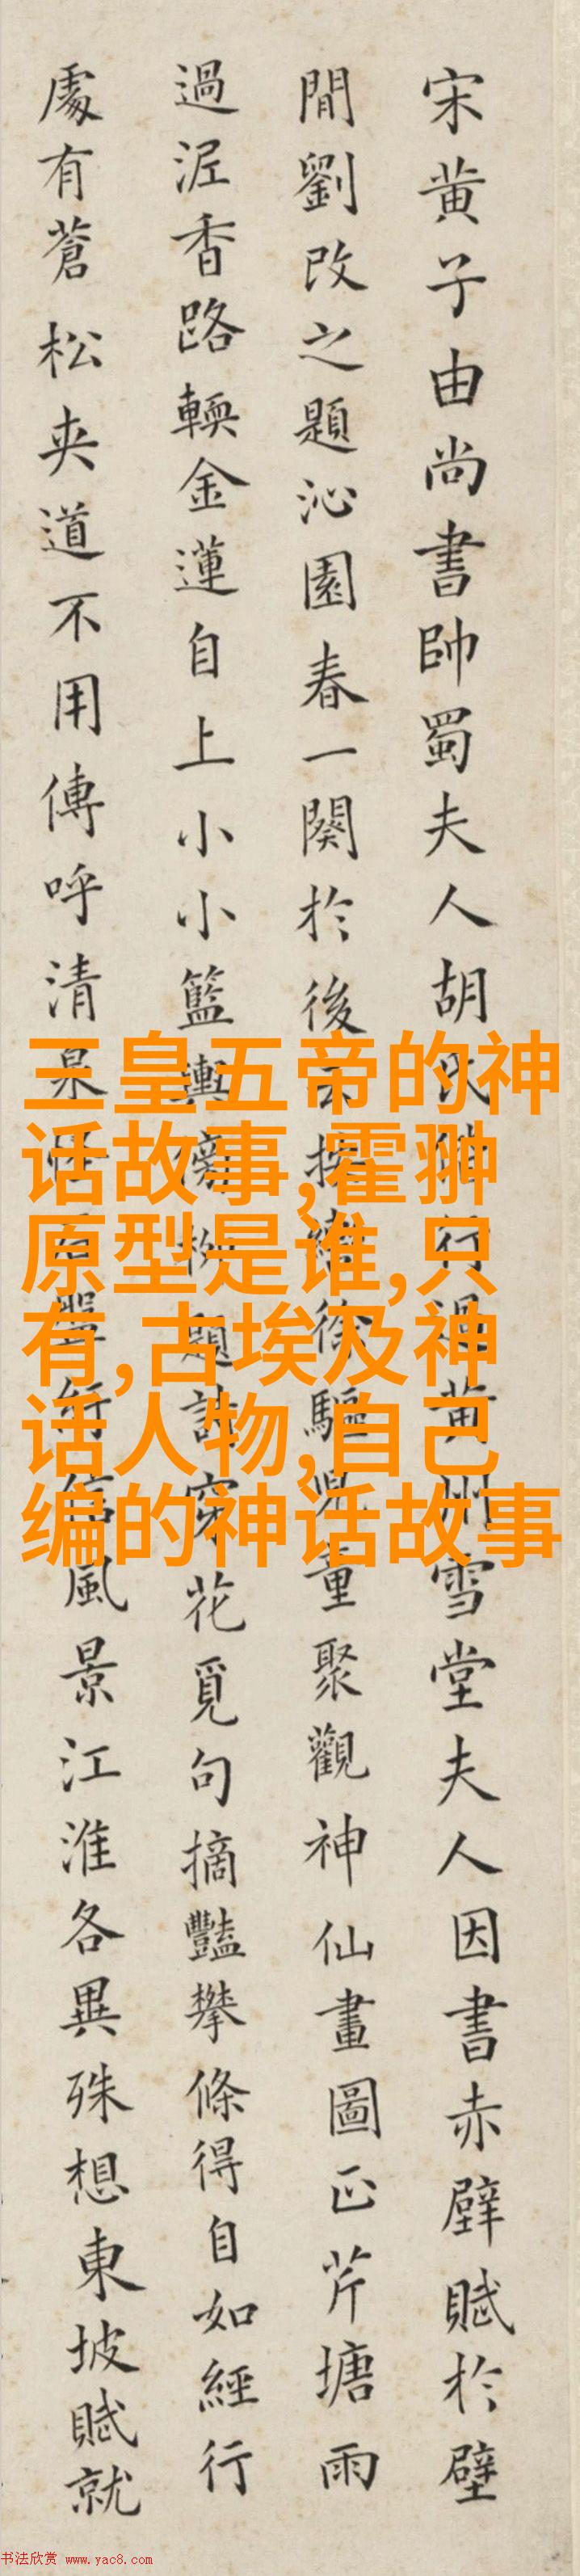 宋黄子由尚書帥蜀夫人胡氏行過黄州雪堂夫人因書赤壁賦於壁
間劉改之題沁園春一闋於後云按轡徐驅兒童聚觀神仙畫圖正芹塘雨
過泥香路輭金蓮自上小小籃輿傍柳題詩穿花覓句摘豔攀條得自如經行
處有蒼松夾道不用傳呼清泉怪石盤紆信風景江淮各異殊想東坡賦就
三皇五帝的神
话故事,霍翀
原型是谁,只
有,古埃及神
话人物,自己
编的神话故事
书法欣赏 www.yac8.com